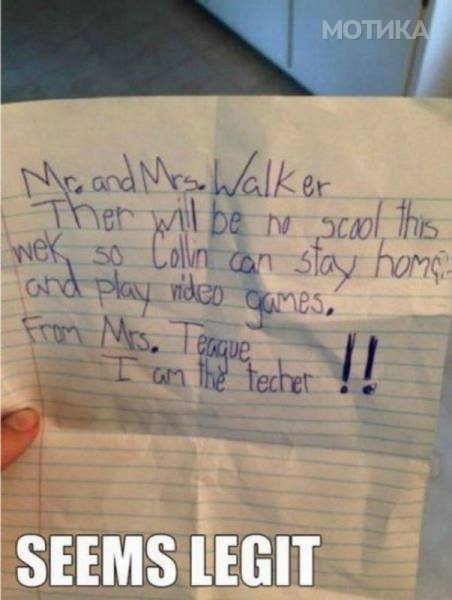 МОТИКА
Mr. and Mrs. Walker
Ther will be no scool this
wek so Collin can stay home
and play video games.
From Mrs. Teague
I am the techer !!
SEEMS LEGIT